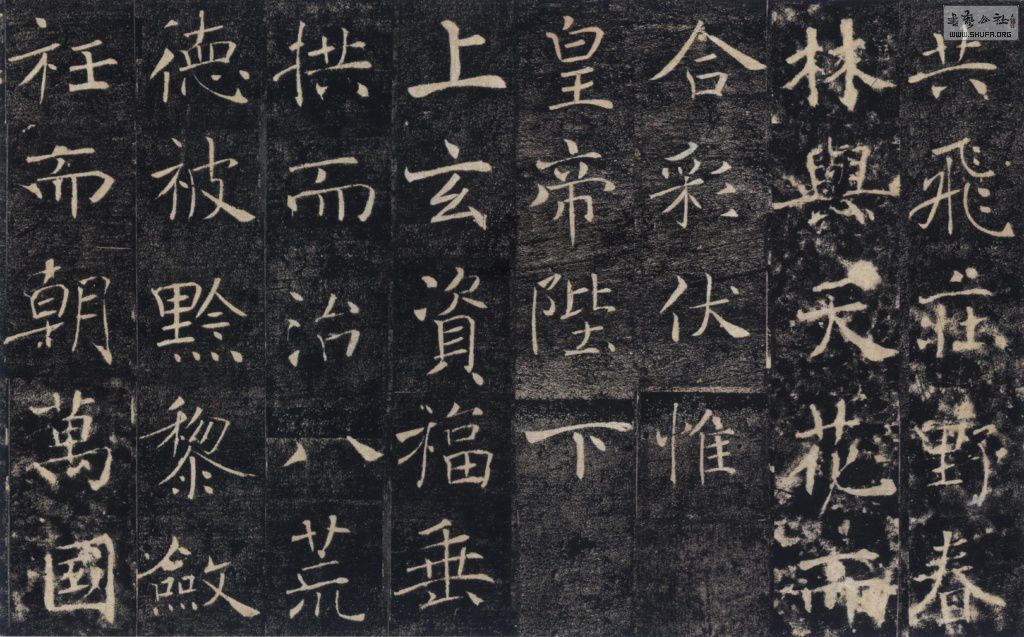 共飛莊野春
林與天花而
合彩伏惟
皇帝陛下
上玄資福垂
拱而治八荒
德被黔黎斂
衽而朝萬國
書藝公社
WWW.SHUFA.ORG